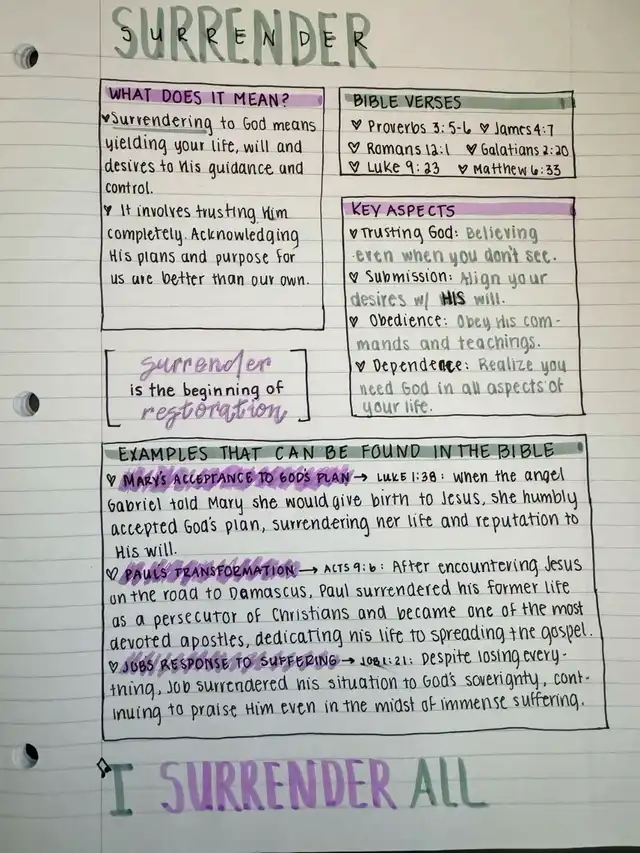 SURRENDER
SURRENDER
WHAT DOES IT MEAN?
♥ Surrendering to God means
yielding your life, will and
desires to His guidance and
control.
♥ It involves trusting Him
completely. Acknowledging
His plans and purpose for
us are better than our own.
BIBLE VERSES
♡ Proverbs 3:5-6 ♡ James 4:7
♡ Romans 12:1 ♡ Galatians 2:20
♡ Luke 9:23 ♡ Matthew 6:33
KEY ASPECTS
♥ Trusting God: Believing
even when you don't see.
♥ Submission: Align your
desires w/ HIS will.
♥ Obedience: Obey His com-
mands and teachings.
♥ Dependence: Realize you
need God in all aspects of
your life.
surrender
is the beginning of
restoration
EXAMPLES THAT CAN BE FOUND IN THE BIBLE
♡ MARY'S ACCEPTANCE TO GOD'S PLAN → LUKE 1:38: When the angel
Gabriel told Mary she would give birth to Jesus, she humbly
accepted God's plan, surrendering her life and reputation to
His will.
♡ PAULS TRANSFORMATION → ACTS 9:6: After encountering Jesus
on the road to Damascus, Paul surrendered his former life
as a persecutor of Christians and became one of the most
devoted apostles, dedicating his life to spreading the gospel.
♡ JOBS RESPONSE TO SUFFERING → JOB 1:21: Despite losing every-
thing, Job surrendered his situation to God's soverignty, cont-
inuing to praise Him even in the midst of immense suffering.
I SURRENDER ALL